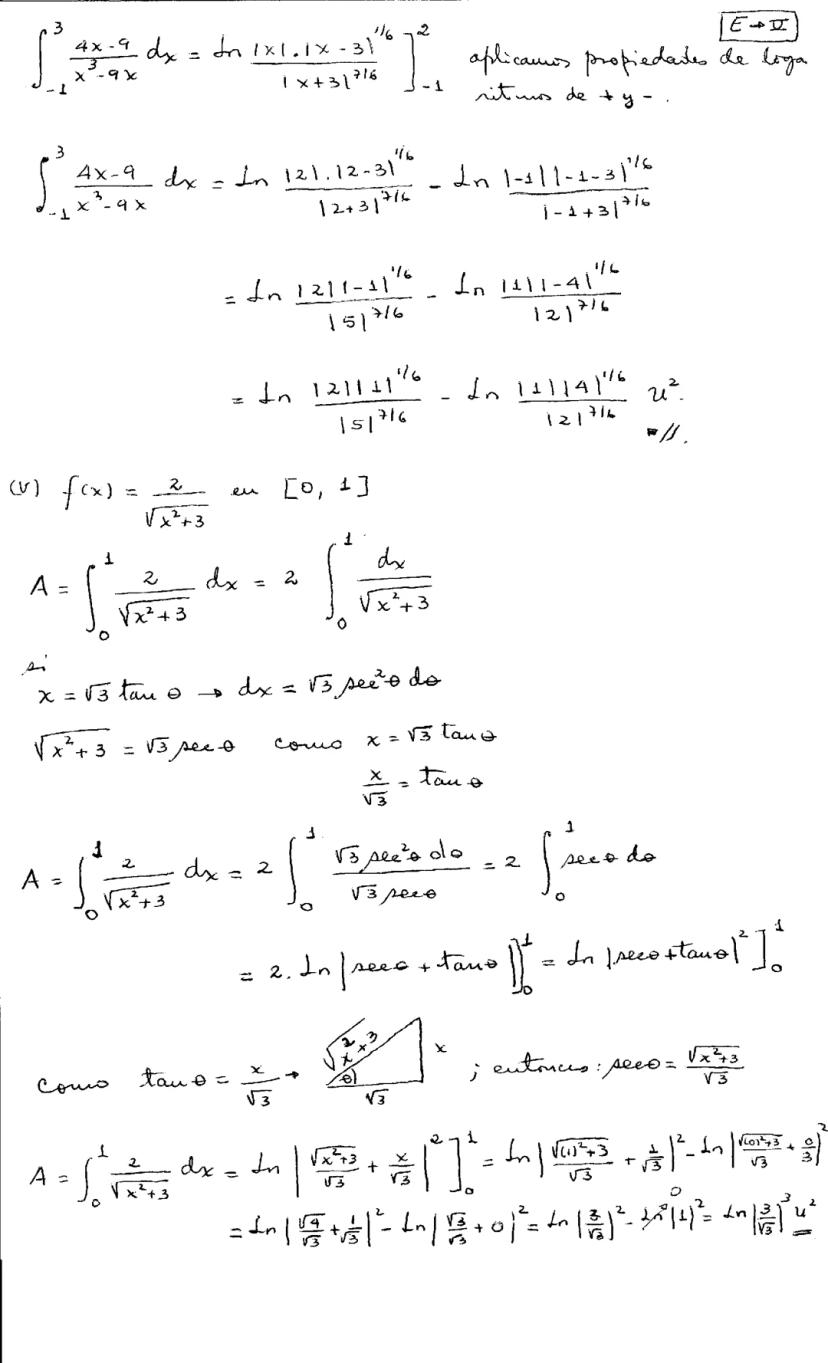 E→V
∫_{-1}^{3} (4x-9)/(x³-9x) dx = Ln (|x|.|x-3|^{1/6})/(|x+3|^{7/6}) ]_{-1}^{2} aplicamos propiedades de loga
ritmos de + y - .
∫_{-1}^{3} (4x-9)/(x³-9x) dx = Ln (|2|.|2-3|^{1/6})/(|2+3|^{7/6}) - Ln (|-1||-1-3|^{1/6})/(|-1+3|^{7/6})
= Ln (|2||-1|^{1/6})/(|5|^{7/6}) - Ln (|1||-4|^{1/6})/(|2|^{7/6})
= Ln (|2||1|^{1/6})/(|5|^{7/6}) - Ln (|1||4|^{1/6})/(|2|^{7/6}) u².
(v) f(x) = 2/√(x²+3) en [0, 1]
A = ∫_{0}^{1} 2/√(x²+3) dx = 2 ∫_{0}^{1} dx/√(x²+3)
si
x = √3 tan θ → dx = √3 sec²θ dθ
√(x²+3) = √3 sec θ como x = √3 tan θ
x/√3 = tan θ
A = ∫_{0}^{1} 2/√(x²+3) dx = 2 ∫_{0}^{1} (√3 sec²θ dθ)/(√3 sec θ) = 2 ∫_{0}^{1} sec θ dθ
= 2. Ln |sec θ + tan θ| ]_{0}^{1} = Ln |sec θ + tan θ|² ]_{0}^{1}
como tan θ = x/√3 → √(x²+3) θ √3 x ; entonces: sec θ = √(x²+3)/√3
A = ∫_{0}^{1} 2/√(x²+3) dx = Ln |√(x²+3)/√3 + x/√3|² ]_{0}^{1} = Ln |√((1)²+3)/√3 + 1/√3|² - Ln |√((0)²+3)/√3 + 0/3|²
= Ln |√4/√3 + 1/√3|² - Ln |√3/√3 + 0|² = Ln |3/√3|² - Ln |1|² 0 = Ln |3/√3|³ u²